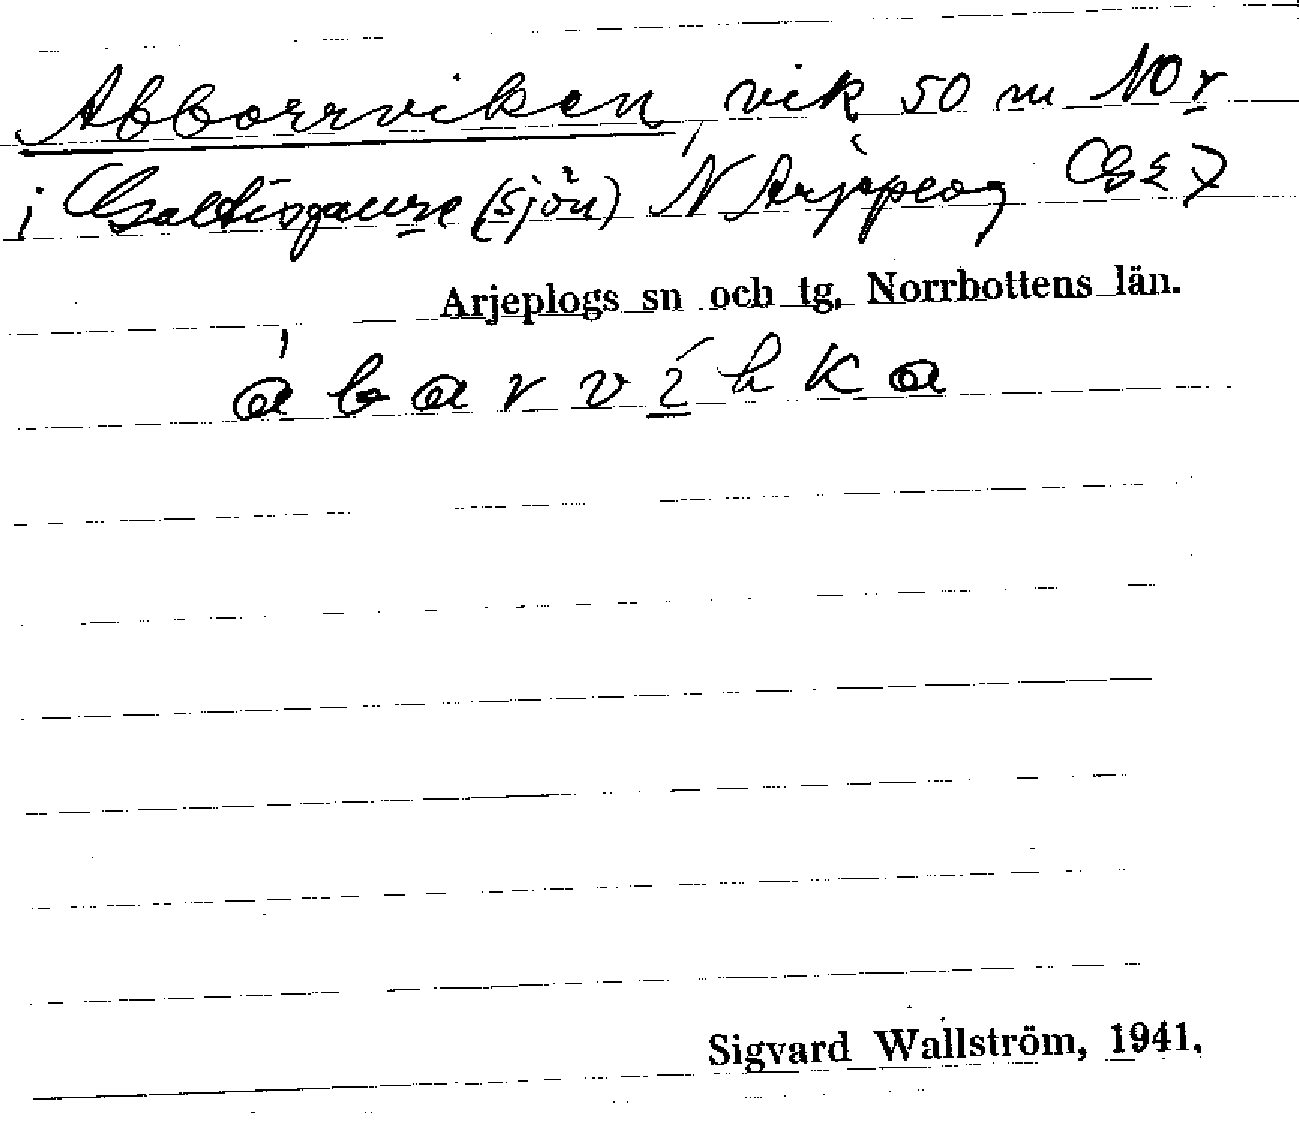 Abborrviken, vik 50 m NO r
i Galtisjaure (sjön) N Arjeplog
Arjeplogs sn och tg, Norrbottens län.
ábarvíhka
Sigvard Wallström, 1941.